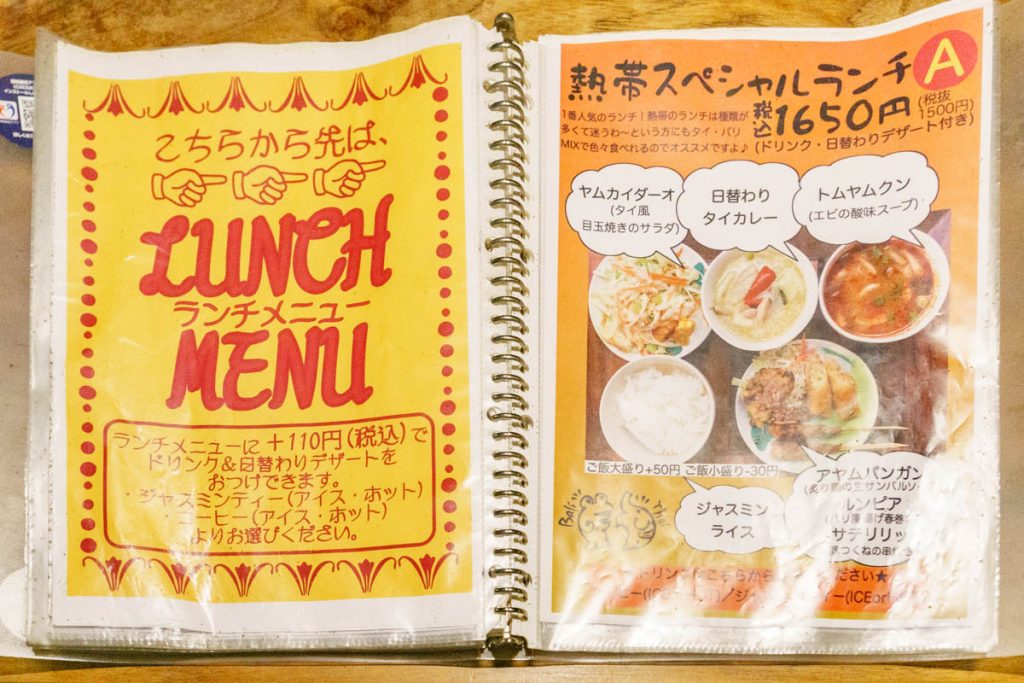 こちらから先は、
LUNCH
ランチメニュー
MENU
ランチメニューに+110円(税込)で
ドリンク&日替わりデザートを
おつけできます。
・ジャスミンティー(アイス・ホット)
・コーヒー(アイス・ホット)
よりお選びください。
熱帯スペシャルランチ
A
1番人気のランチ!熱帯のランチは種類が
多くて迷うわ〜という方にもタイ・バリ
MIXで色々食べれるのでオススメですよ♪
税込1650円
(税抜
1500円)
(ドリンク・日替わりデザート付き)
ヤムカイダーオ
(タイ風
目玉焼きのサラダ)
日替わり
タイカレー
トムヤムクン
(エビの酸味スープ)
ご飯大盛り+50円 ご飯小盛り-30円
Bali
Thai
ジャスミン
ライス
アヤムパンガン
(炙り鶏の生サンバルソ
ルンピア
(バリ風揚げ春巻
サテリリッ
つくねの串
ドリンクはこちらから
ださい★